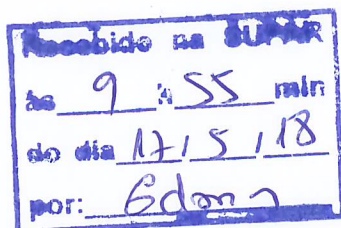 Recebido na SUPAR
às 9 h 55 min
do dia 17/5/18
por: